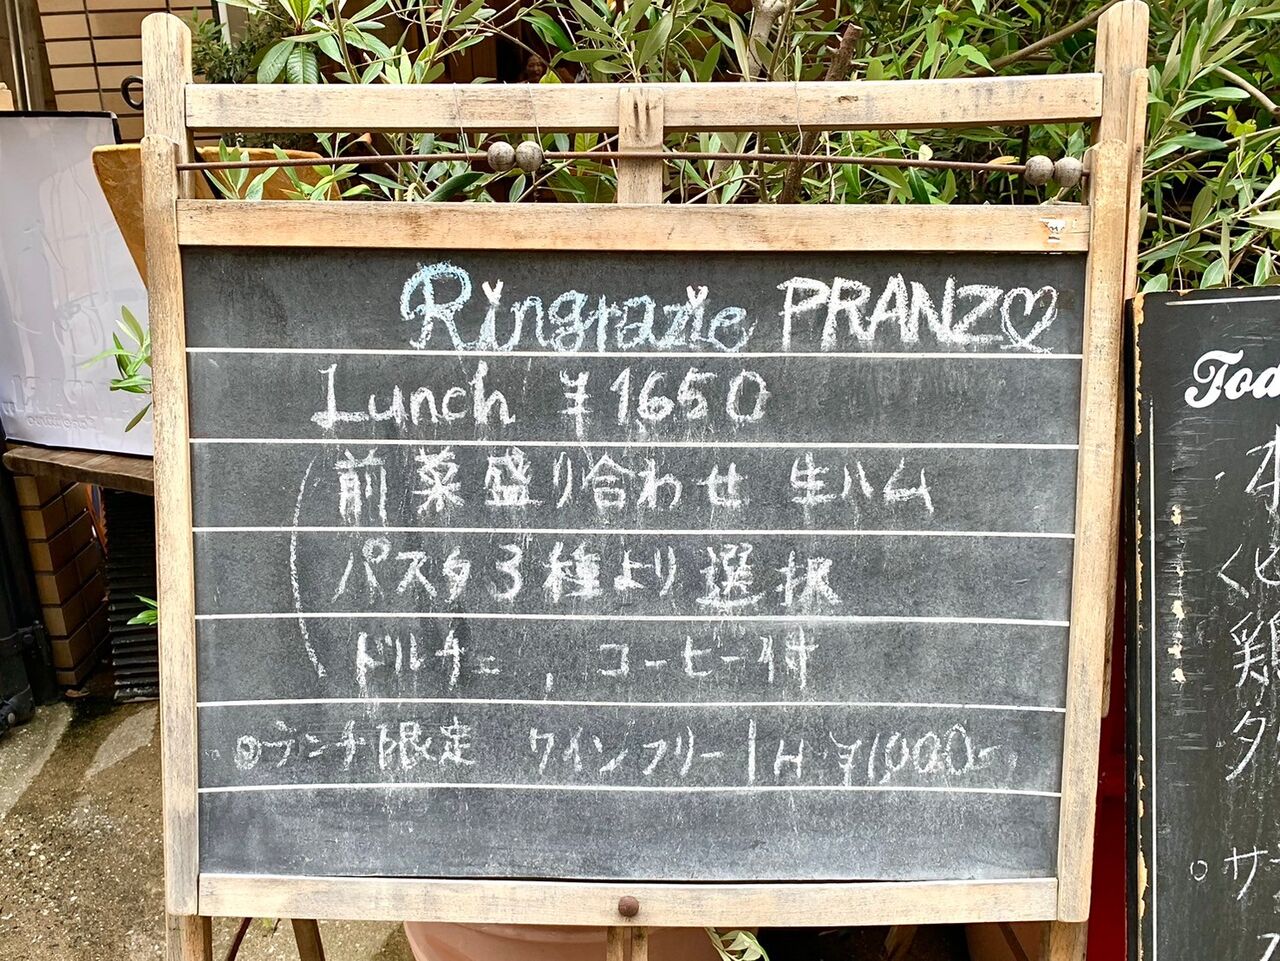 Ringrazie PRANZO
Lunch ¥1650
前菜盛り合わせ 生ハム
パスタ3種より選択
ドルチェ、コーヒー付
◎ランチ限定 ワインフリー1H ¥1,000-
Tod
本
鶏
タ
サ